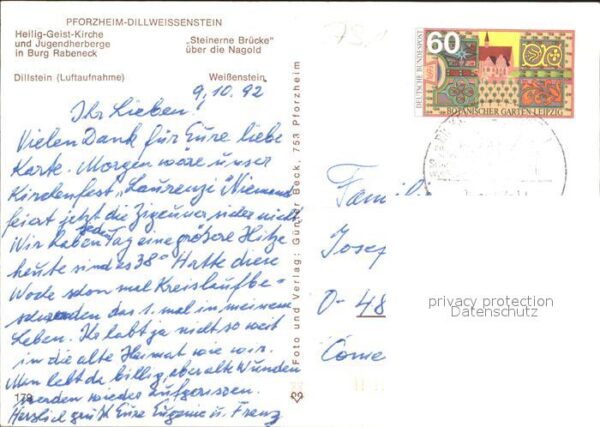 PFORZHEIM-DILLWEISSENSTEIN
Heilig-Geist-Kirche
und Jugendherberge
in Burg Rabeneck
„Steinerne Brücke"
über die Nagold
Dillstein (Luftaufnahme)
Weißenstein
9.10.92
Ihr Lieben!
Vielen Dank für Eure liebe
Karte. Morgen wäre unser
Kirchenfest „Laurenzi" Niemand
feiert jetzt die Zigeuner sicher nicht
Wir haben jeden Tag eine größere Hitze
heute sind es 38° Hatte diese
Woche schon mal Kreislaufbe-
schwerden das 1. mal in meinem
Leben. Ihr habt ja nicht so weit
in die alte Heimat wie wir.
Man lebt da billig, aber alte Wunden
werden wieder aufgerissen.
Herzlich grüßt Eure Eugenie u. Franz
179
Foto und Verlag: Günter Beck, 753 Pforzheim
60
DEUTSCHE BUNDESPOST
BOTANISCHER GARTEN LEIPZIG
Famil
Josef
O-48
privacy protection
Datenschutz